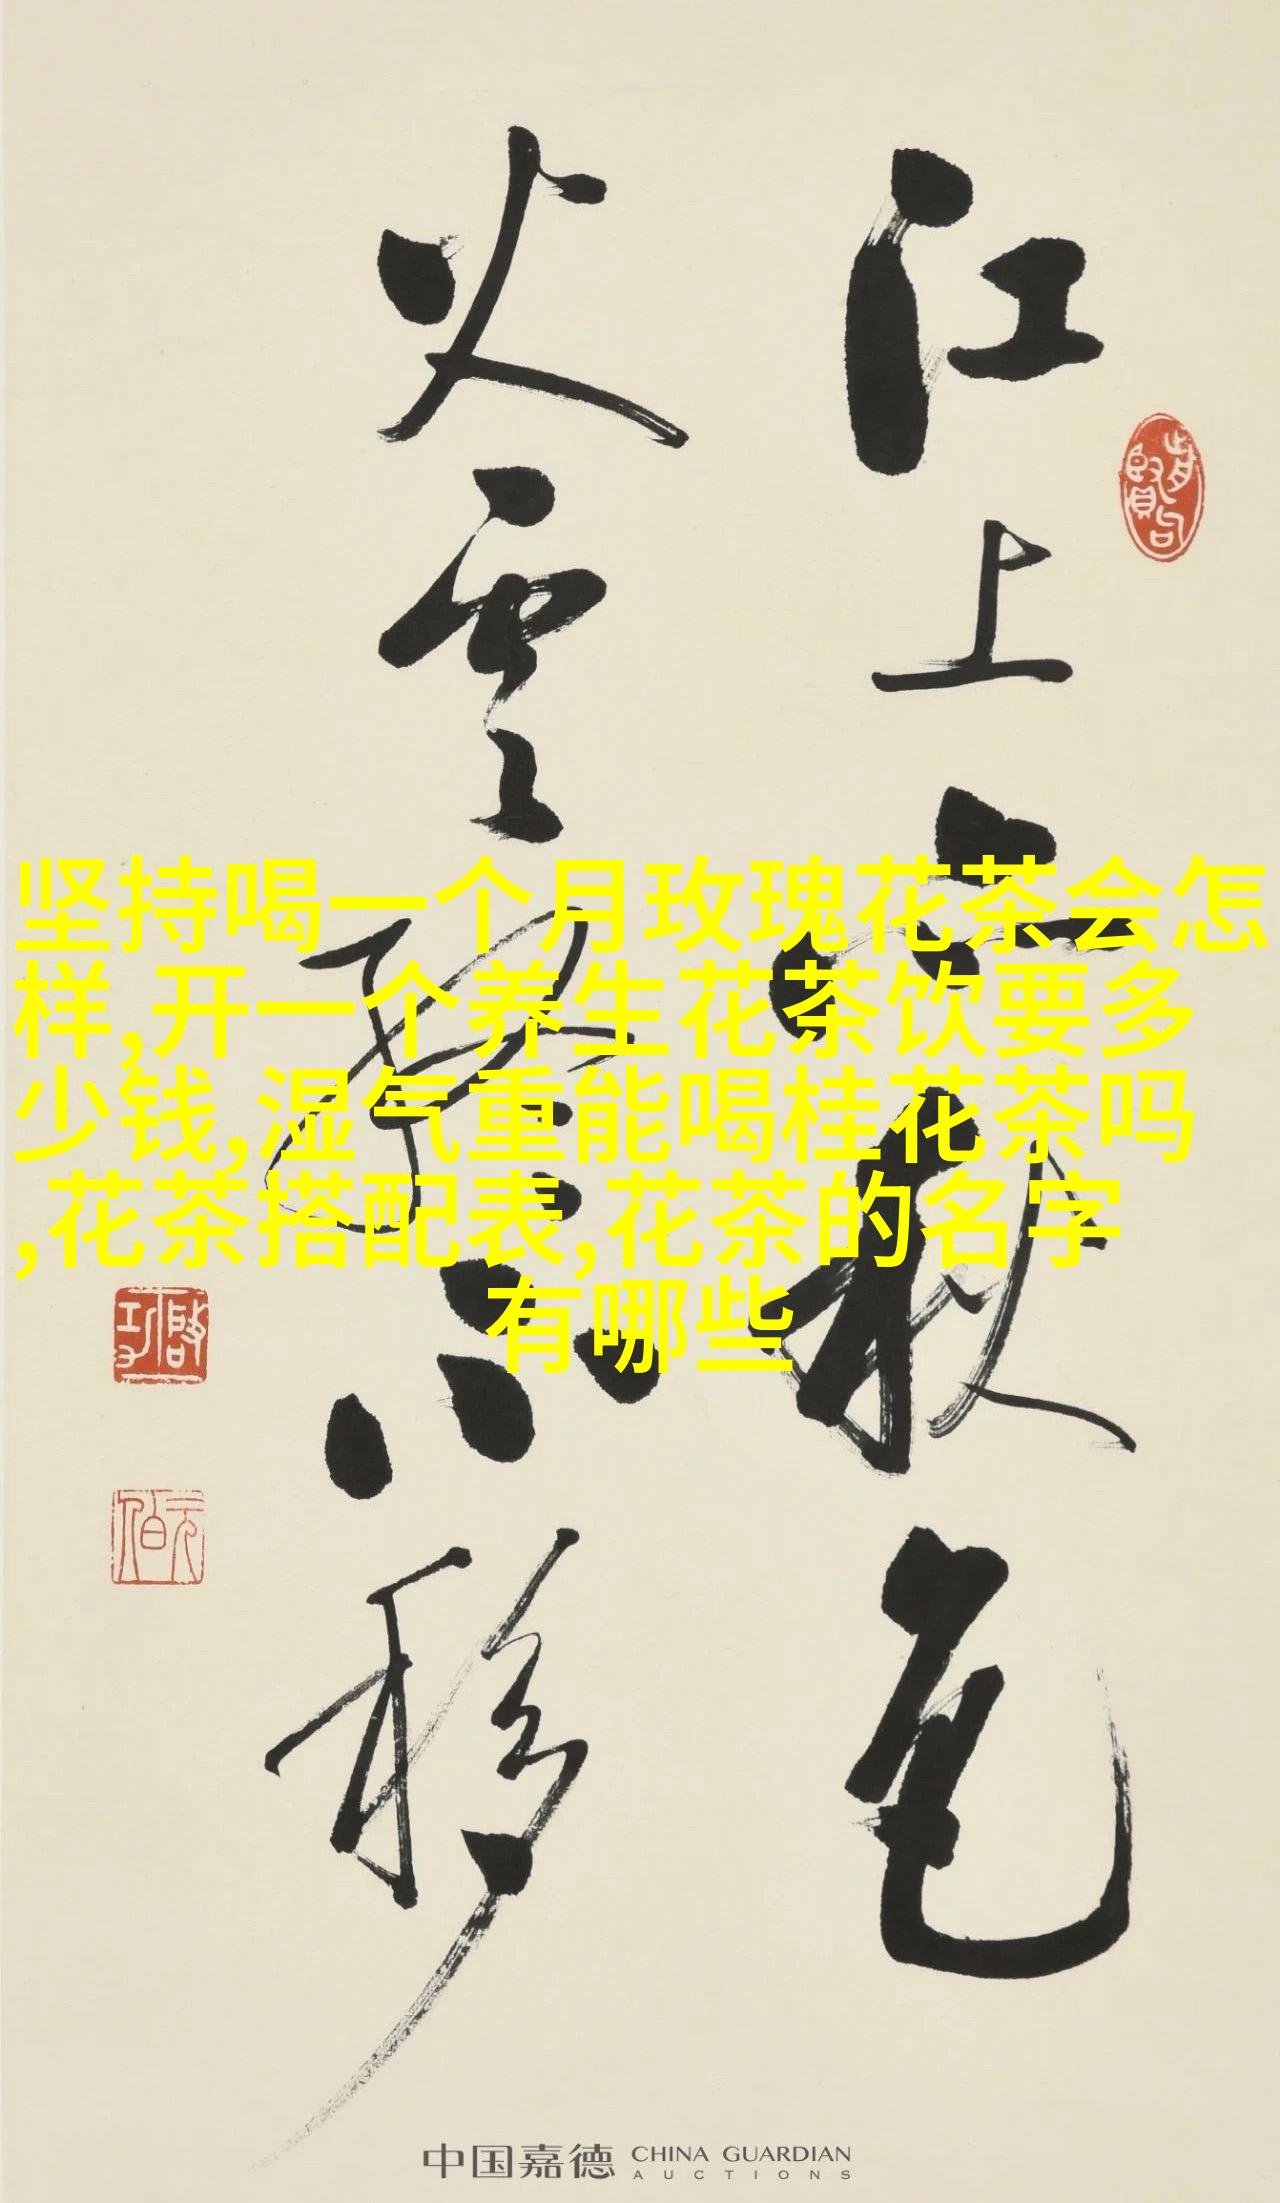 江上六秋色
火雲終不移
坚持喝一个月玫瑰花茶会怎
样,开一个养生花茶饮要多
少钱,湿气重能喝桂花茶吗
,花茶搭配表,花茶的名字
有哪些
啟功
元白
中国嘉德 CHINA GUARDIAN
AUCTIONS